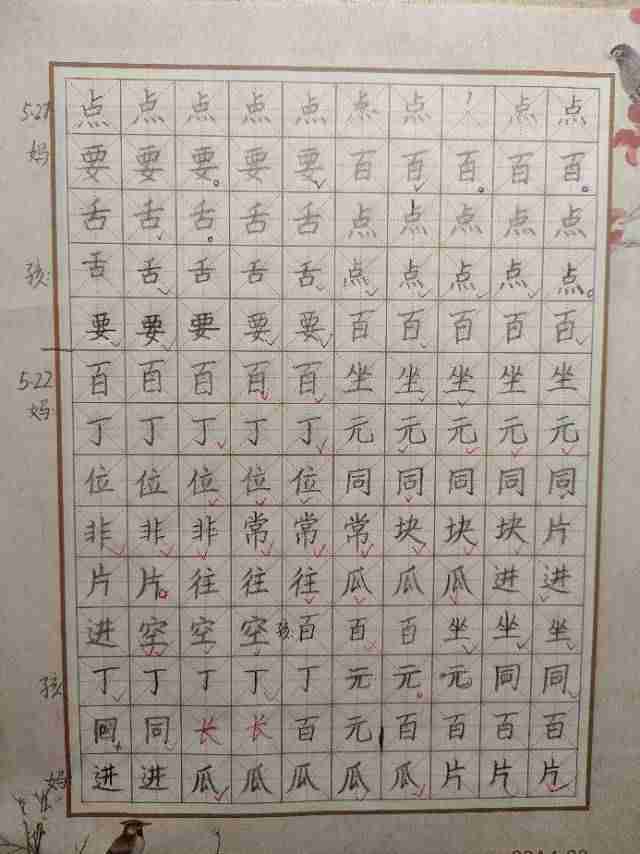 5.21 点点点点点点点点点
妈 要要要要要百百百百百
舌舌舌舌舌点点点点点
孩: 舌舌舌舌舌点点点点点
要要要要要百百百百百
5.22 百百百百百坐坐坐坐坐
妈: 丁丁丁丁丁元元元元元
位位位位位同同同同同
非非非常常常块块块片
片片往往往瓜瓜瓜进进
进空空空孩:百百百坐坐坐
孩: 丁丁丁丁丁元元元同同
同长长百元百百百百
妈: 进进瓜瓜瓜瓜瓜片片片